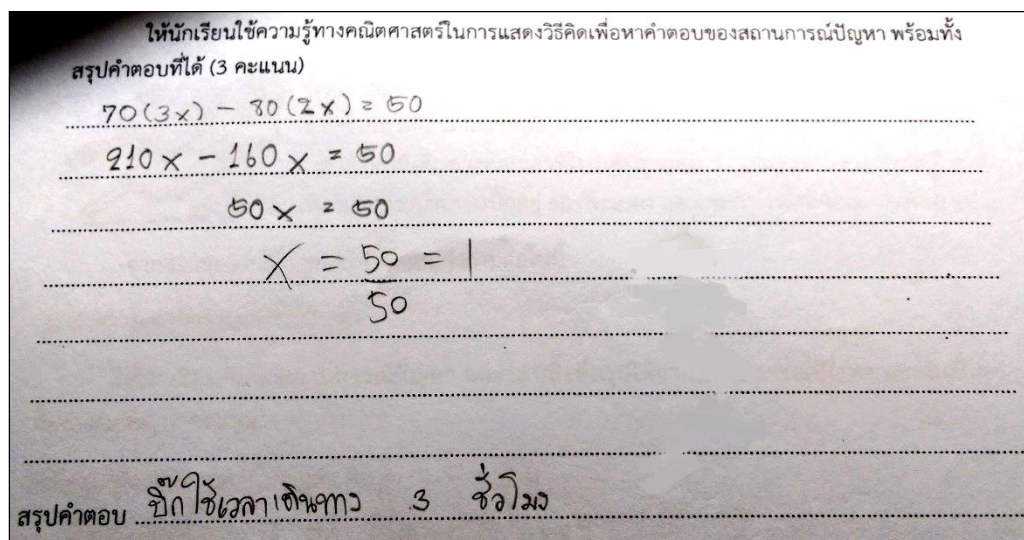 ให้นักเรียนใช้ความรู้ทางคณิตศาสตร์ในการแสดงวิธีคิดเพื่อหาคำตอบของสถานการณ์ปัญหา พร้อมทั้ง
สรุปคำตอบที่ได้ (3 คะแนน)
70(3x) - 80(2x) = 50
210x - 160x = 50
50x = 50
x = 50/50 = 1
สรุปคำตอบ บิ๊กใช้เวลาเดินทาง 3 ชั่วโมง